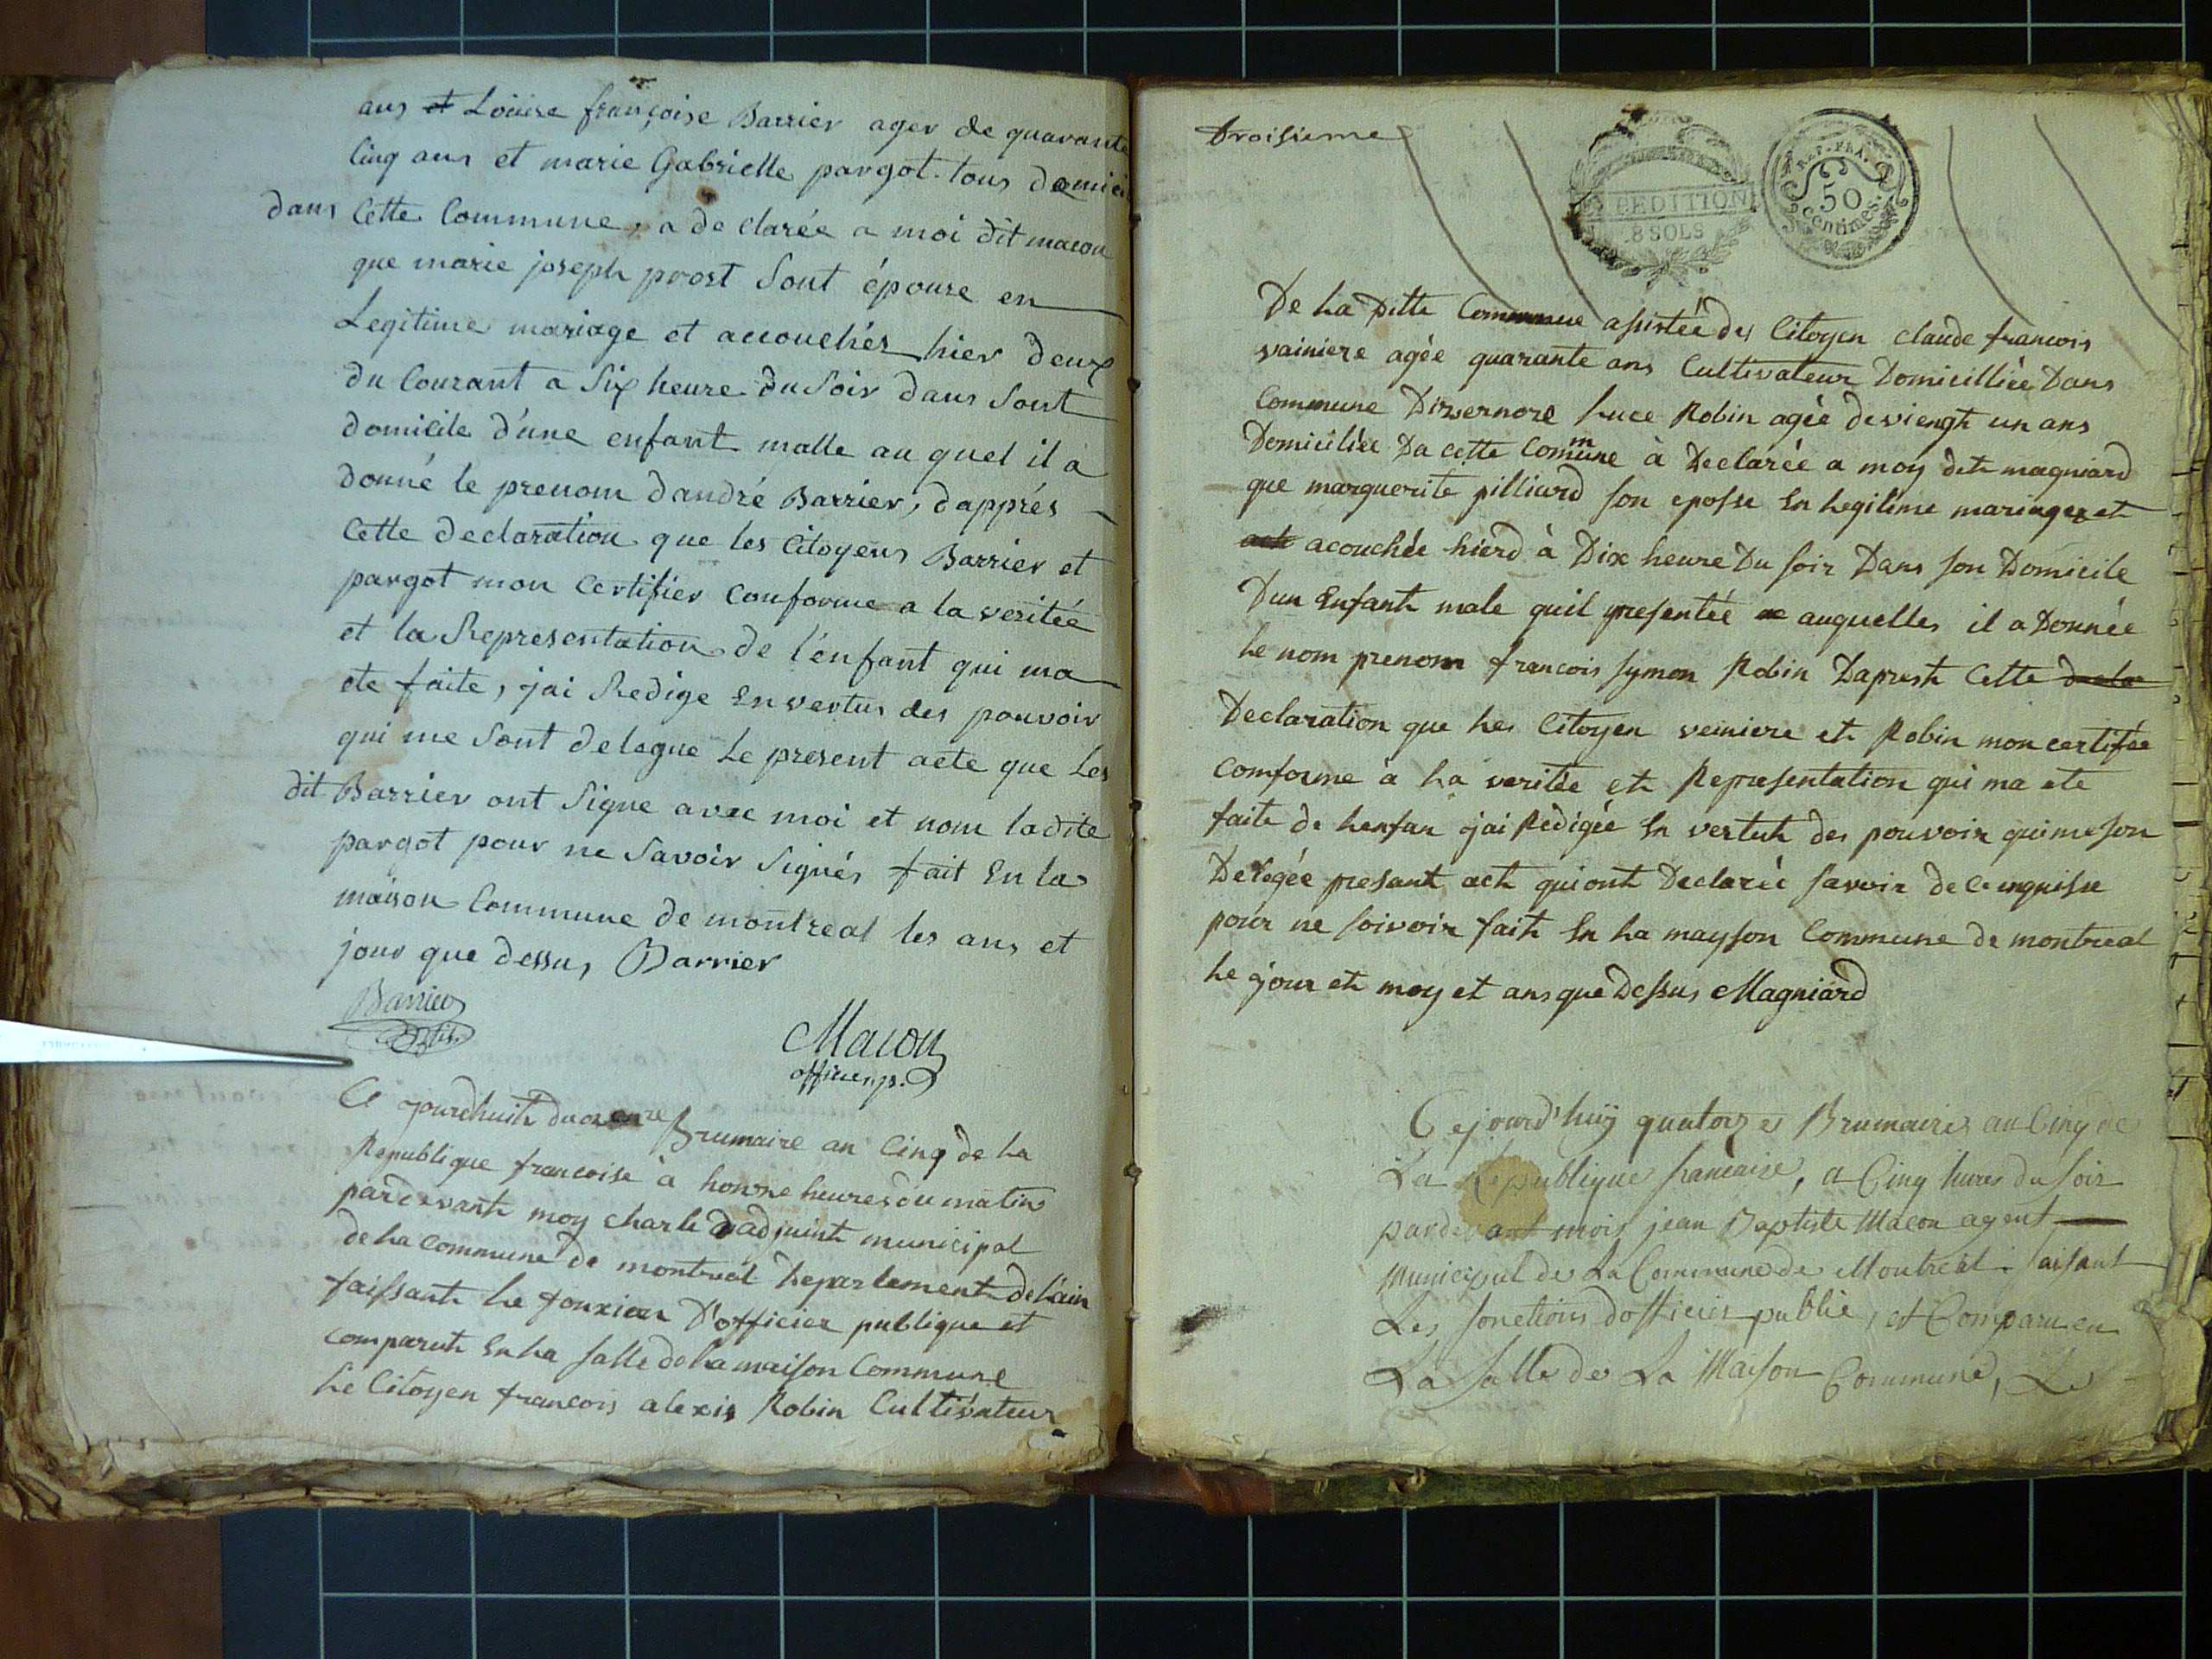 ans et Loüise françoise Barrier ager de quarante
Cinq ans et marie Gabrielle pargot tous domici
dans Cette Commune, a de clarée a moi dit macon
que marie joseph prost Sont épouse en
Legitime mariage et accouchés hier deux
du Courant a Six heure du Soir dans Sont
domicile d'une enfant malle au quel il a
donné le prenom dandré Barrier, dapprés
Cette declaration que les Citoyens Barrier et
pargot mon Certifier Conforme a la veritée
et la Representation de l'énfant qui ma
ete faite, jai Redige En vertus des pouvoir
qui me Sont delegue Le present acte que Les
dit Barrier ont Signe avec moi et nom ladite
pargot pour ne Savoir Signés fait En la
maison Commune de montreal les ans et
jour que dessus Barrier
Barrier
fils
Macon
officier p.
Ce jourdhuit Brumaire an Cinq de la
Republique francoise à honze heures du matin
pardevant moy charle adjuint municipal
de la Commune de montreal Departement de lain
faissant le fonxion D'officier publique et
comparut En la salle de la maison Commune
Le Citoyen francois alexis Robin Cultivateur
troisieme
EXPEDITION
8 SOLS
REP. FRA.
50
Centimes.
De La Ditte Commune asistée des Citoyen claude francois
vainiere agée quarante ans Cultivateur Domicilliée Dans
Commune Luce Robin agée de viengt un ans
Domiciliée Da cette Commune à Declarée a moy dit magniard
que marguerite pilliard son eposse En Legitime mariage et
acouchée hierd à Dix heure Du soir Dans son Domicile
Dun Enfant male quil presentée auquelles il a Donnée
Le nom prenom francois symon Robin Daprest Cette decla
Declaration que Les Citoyen veiniere et Robin mon certifée
comforme à La veritée et Representation qui ma ete
faite de Lenfan jai Redigée En vertut des pouvoir qui me son
Delegée presant act qui ont Declaré savoir de ce enquise
pour ne soivoir fait En La mayson Commune de montreal
Le jour et moy et ans que Dessus Magniard
Cejourd'huy quatorze Brumaire an Cinq de
La Republique francaise, a Cinq hures du soir
pardevant mois jean Baptiste Macon agent
Municipal de La Commune de Montreal faisant
Les fonctions dofficier public, et Comparu en
La Salle de La Maison Commune, Le